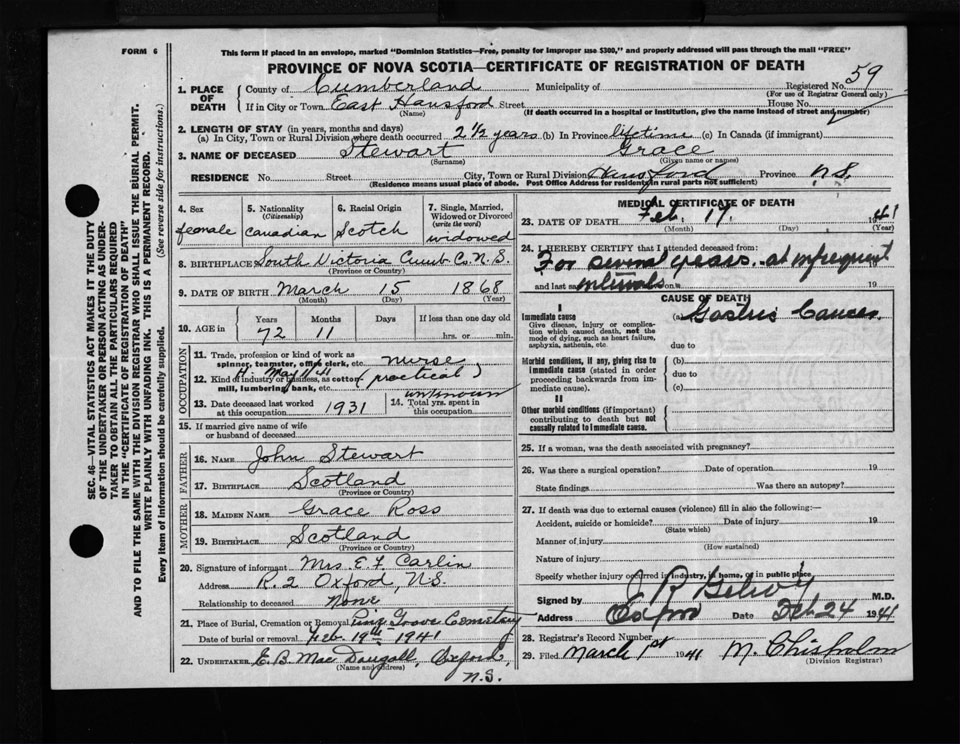 FORM 6
This form if placed in an envelope, marked "Dominion Statistics—Free, penalty for improper use $300," and properly addressed will pass through the mail "FREE"
PROVINCE OF NOVA SCOTIA—CERTIFICATE OF REGISTRATION OF DEATH
SEC. 46—VITAL STATISTICS ACT MAKES IT THE DUTY
OF THE UNDERTAKER OR PERSON ACTING AS UNDER-
TAKER TO OBTAIN ALL THE PARTICULARS REQUIRED
IN THE "CERTIFICATE OF REGISTRATION OF DEATH"
AND TO FILE THE SAME WITH THE DIVISION REGISTRAR WHO SHALL ISSUE THE BURIAL PERMIT.
WRITE PLAINLY WITH UNFADING INK. THIS IS A PERMANENT RECORD.
Every item of information should be carefully supplied. (See reverse side for instructions.)
1. PLACE OF DEATH
County of Cumberland Municipality of Registered No. 59
(For use of Registrar General only)
If in City or Town East Hansford Street House No.
(Name) (If death occurred in a hospital or institution, give the name instead of street and number)
2. LENGTH OF STAY (in years, months and days)
(a) In City, Town or Rural Division where death occurred 2 1/2 years (b) In Province lifetime (c) In Canada (if immigrant)
3. NAME OF DECEASED Stewart Grace
(Surname) (Given name or names)
RESIDENCE No. Street City, Town or Rural Division Hansford Province N.S.
(Residence means usual place of abode. Post Office Address for residents in rural parts not sufficient)
4. Sex female
5. Nationality (Citizenship) Canadian
6. Racial Origin Scotch
7. Single, Married, Widowed or Divorced (write the word) widowed
8. BIRTHPLACE South Victoria Cumb Co. N.S.
(Province or Country)
9. DATE OF BIRTH March 15 1868
(Month) (Day) (Year)
10. AGE in Years 72 Months 11 Days If less than one day old hrs. or min.
OCCUPATION
11. Trade, profession or kind of work as spinner, teamster, office clerk, etc. nurse
12. Kind of industry or business, as cotton mill, lumbering, bank, etc. (practical)
13. Date deceased last worked at this occupation 1931
14. Total yrs. spent in this occupation unknown
15. If married give name of wife or husband of deceased
FATHER
16. NAME John Stewart
17. BIRTHPLACE Scotland
(Province or Country)
MOTHER
18. MAIDEN NAME Grace Ross
19. BIRTHPLACE Scotland
(Province or Country)
20. Signature of informant Mrs. E. F. Carlin
Address R. 2 Oxford, N.S.
Relationship to deceased None
21. Place of Burial, Cremation or Removal Pine Grove Cemetery
Date of burial or removal Feb. 19th 1941
22. UNDERTAKER E. B. Mac Dougall, Oxford,
(Name and address) N.S.
MEDICAL CERTIFICATE OF DEATH
23. DATE OF DEATH Feb. 17. 1941
(Month) (Day) (Year)
24. I HEREBY CERTIFY that I attended deceased from:
For several years. at infrequent
and last saw intervals on 19
CAUSE OF DEATH
I
Immediate cause (a) Gastric Cancer
Give disease, injury or complication which caused death, not the mode of dying, such as heart failure, asphyxia, asthenia, etc.
due to
Morbid conditions, if any, giving rise to immediate cause (stated in order proceeding backwards from immediate cause).
(b)
due to
(c)
II
Other morbid conditions (if important) contributing to death but not causally related to immediate cause.
25. If a woman, was the death associated with pregnancy?
26. Was there a surgical operation? Date of operation 19
State findings Was there an autopsy?
27. If death was due to external causes (violence) fill in also the following:—
Accident, suicide or homicide? Date of injury 19
(State which)
Manner of injury
(How sustained)
Nature of injury
Specify whether injury occurred in industry, in home, or in public place
Signed by M.D.
Address Oxford Date Feb 24 1941
28. Registrar's Record Number
29. Filed March 1st 1941 M. Chisholm
(Division Registrar)